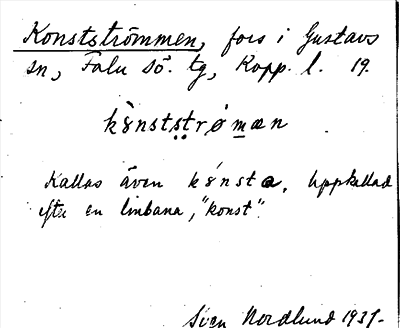 Konstströmmen, fors i Gustavs
sn, Falu sö. tg, Kopp. l. 19.
kònstṣṭrǿm̲æn
Kallas även kónsta. Uppkallad
efter en linbana, "konst".
Sven Nordlund 1931-